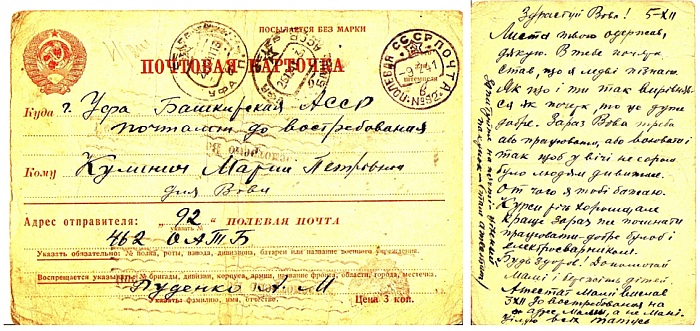 ПОСЫЛАЕТСЯ БЕЗ МАРКИ
ПОЧТОВАЯ КАРТОЧКА
Куда г. Уфа Башкирская АССР
почтамт до востребования
Кому Кулинич Марии Петровне
для Вови
Адрес отправителя: „92“ ПОЛЕВАЯ ПОЧТА
указать №
462 ОАТБ
Указать обязательно: № полка, роты, взвода, дивизиона, батареи или название военного учреждения.
Воспрещается указывать: № бригады, дивизии, корпуса, армии, название фронта, области, города, местечка.
Руденко А. М
указать фамилию, имя, отчество.
Цена 3 коп.
СССР ПОЧТА
ПОЛЕВАЯ
УФА
Здрастуй Вова! 5-XII
Листа твого одержав,
дякую. В тебе почерк
став, що я ледві пізнаю.
Як що і ти так вирівняв
ся як почерк, то це дуже
добре. Зараз Вова треба
або працювати, або воювати
так щоб у вічі не сором
було людям дивитися.
От чого я тобі бажаю.
Курси річ хороша, але
краще зараз же починати
працювати добре було б і
електросварником.
Будь здоров! Допомогай
Мамі і бережіть дітей
Атестат Мамі вислав
3XII до востребования на
адрес
цілую всіх